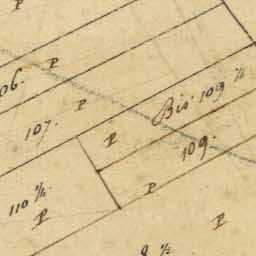 P
P
106.
P
Bis. 109 ½
107.
P
109.
P
110 ½.
P
P
½